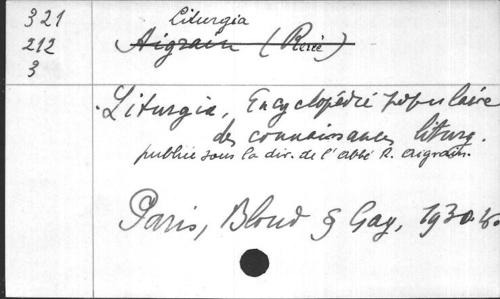 321
212
3
Liturgia
Aigrain (René)
Liturgia, Encyclopédie populaire
des connaissances liturg.
publiée sous la dir. de l'abbé R. Aigrain.
Paris, Bloud & Gay, 1930.